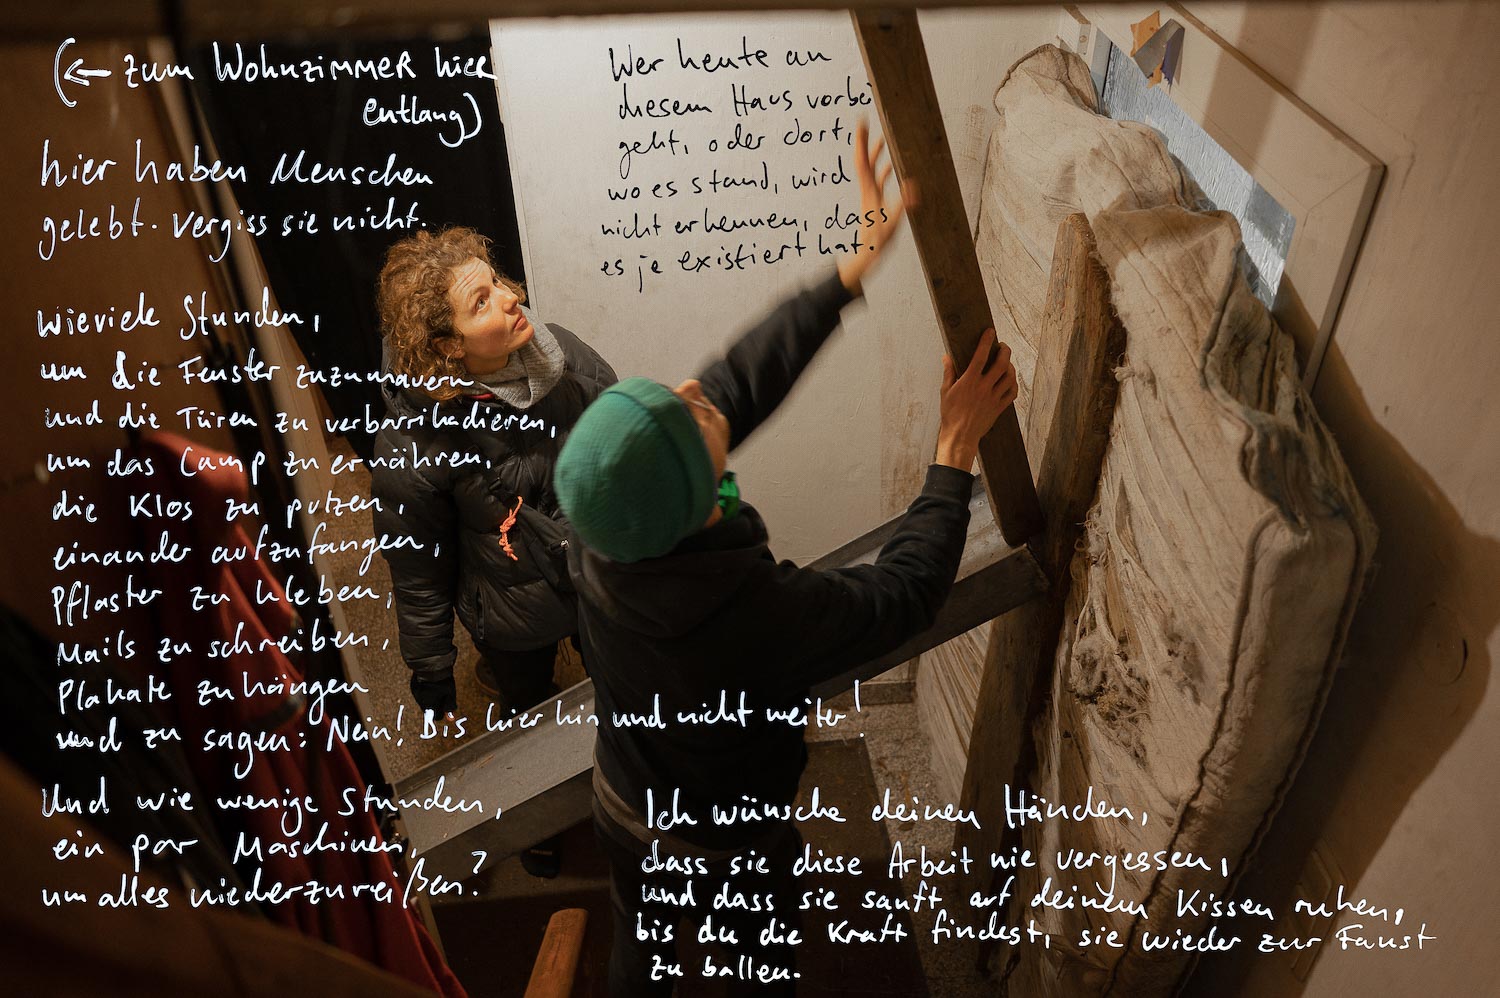 (← zum Wohnzimmer hier
entlang)
hier haben Menschen
gelebt. Vergiss sie nicht.
Wieviele Stunden,
um die Fenster zuzumauern
und die Türen zu verbarrikadieren,
um das Camp zu ernähren,
die Klos zu putzen,
einander aufzufangen,
Pflaster zu kleben,
Mails zu schreiben,
Plakate zu hängen
und zu sagen: Nein! Bis hier hin und nicht weiter!
Und wie wenige Stunden,
ein par Maschinen,
um alles niederzureißen?
Wer heute an
diesem Haus vorbei
geht, oder dort,
wo es stand, wird
nicht erkennen, dass
es je existiert hat.
Ich wünsche deinen Händen,
dass sie diese Arbeit nie vergessen,
und dass sie sanft auf deinem Kissen ruhen,
bis du die Kraft findest, sie wieder zur Faust
zu ballen.